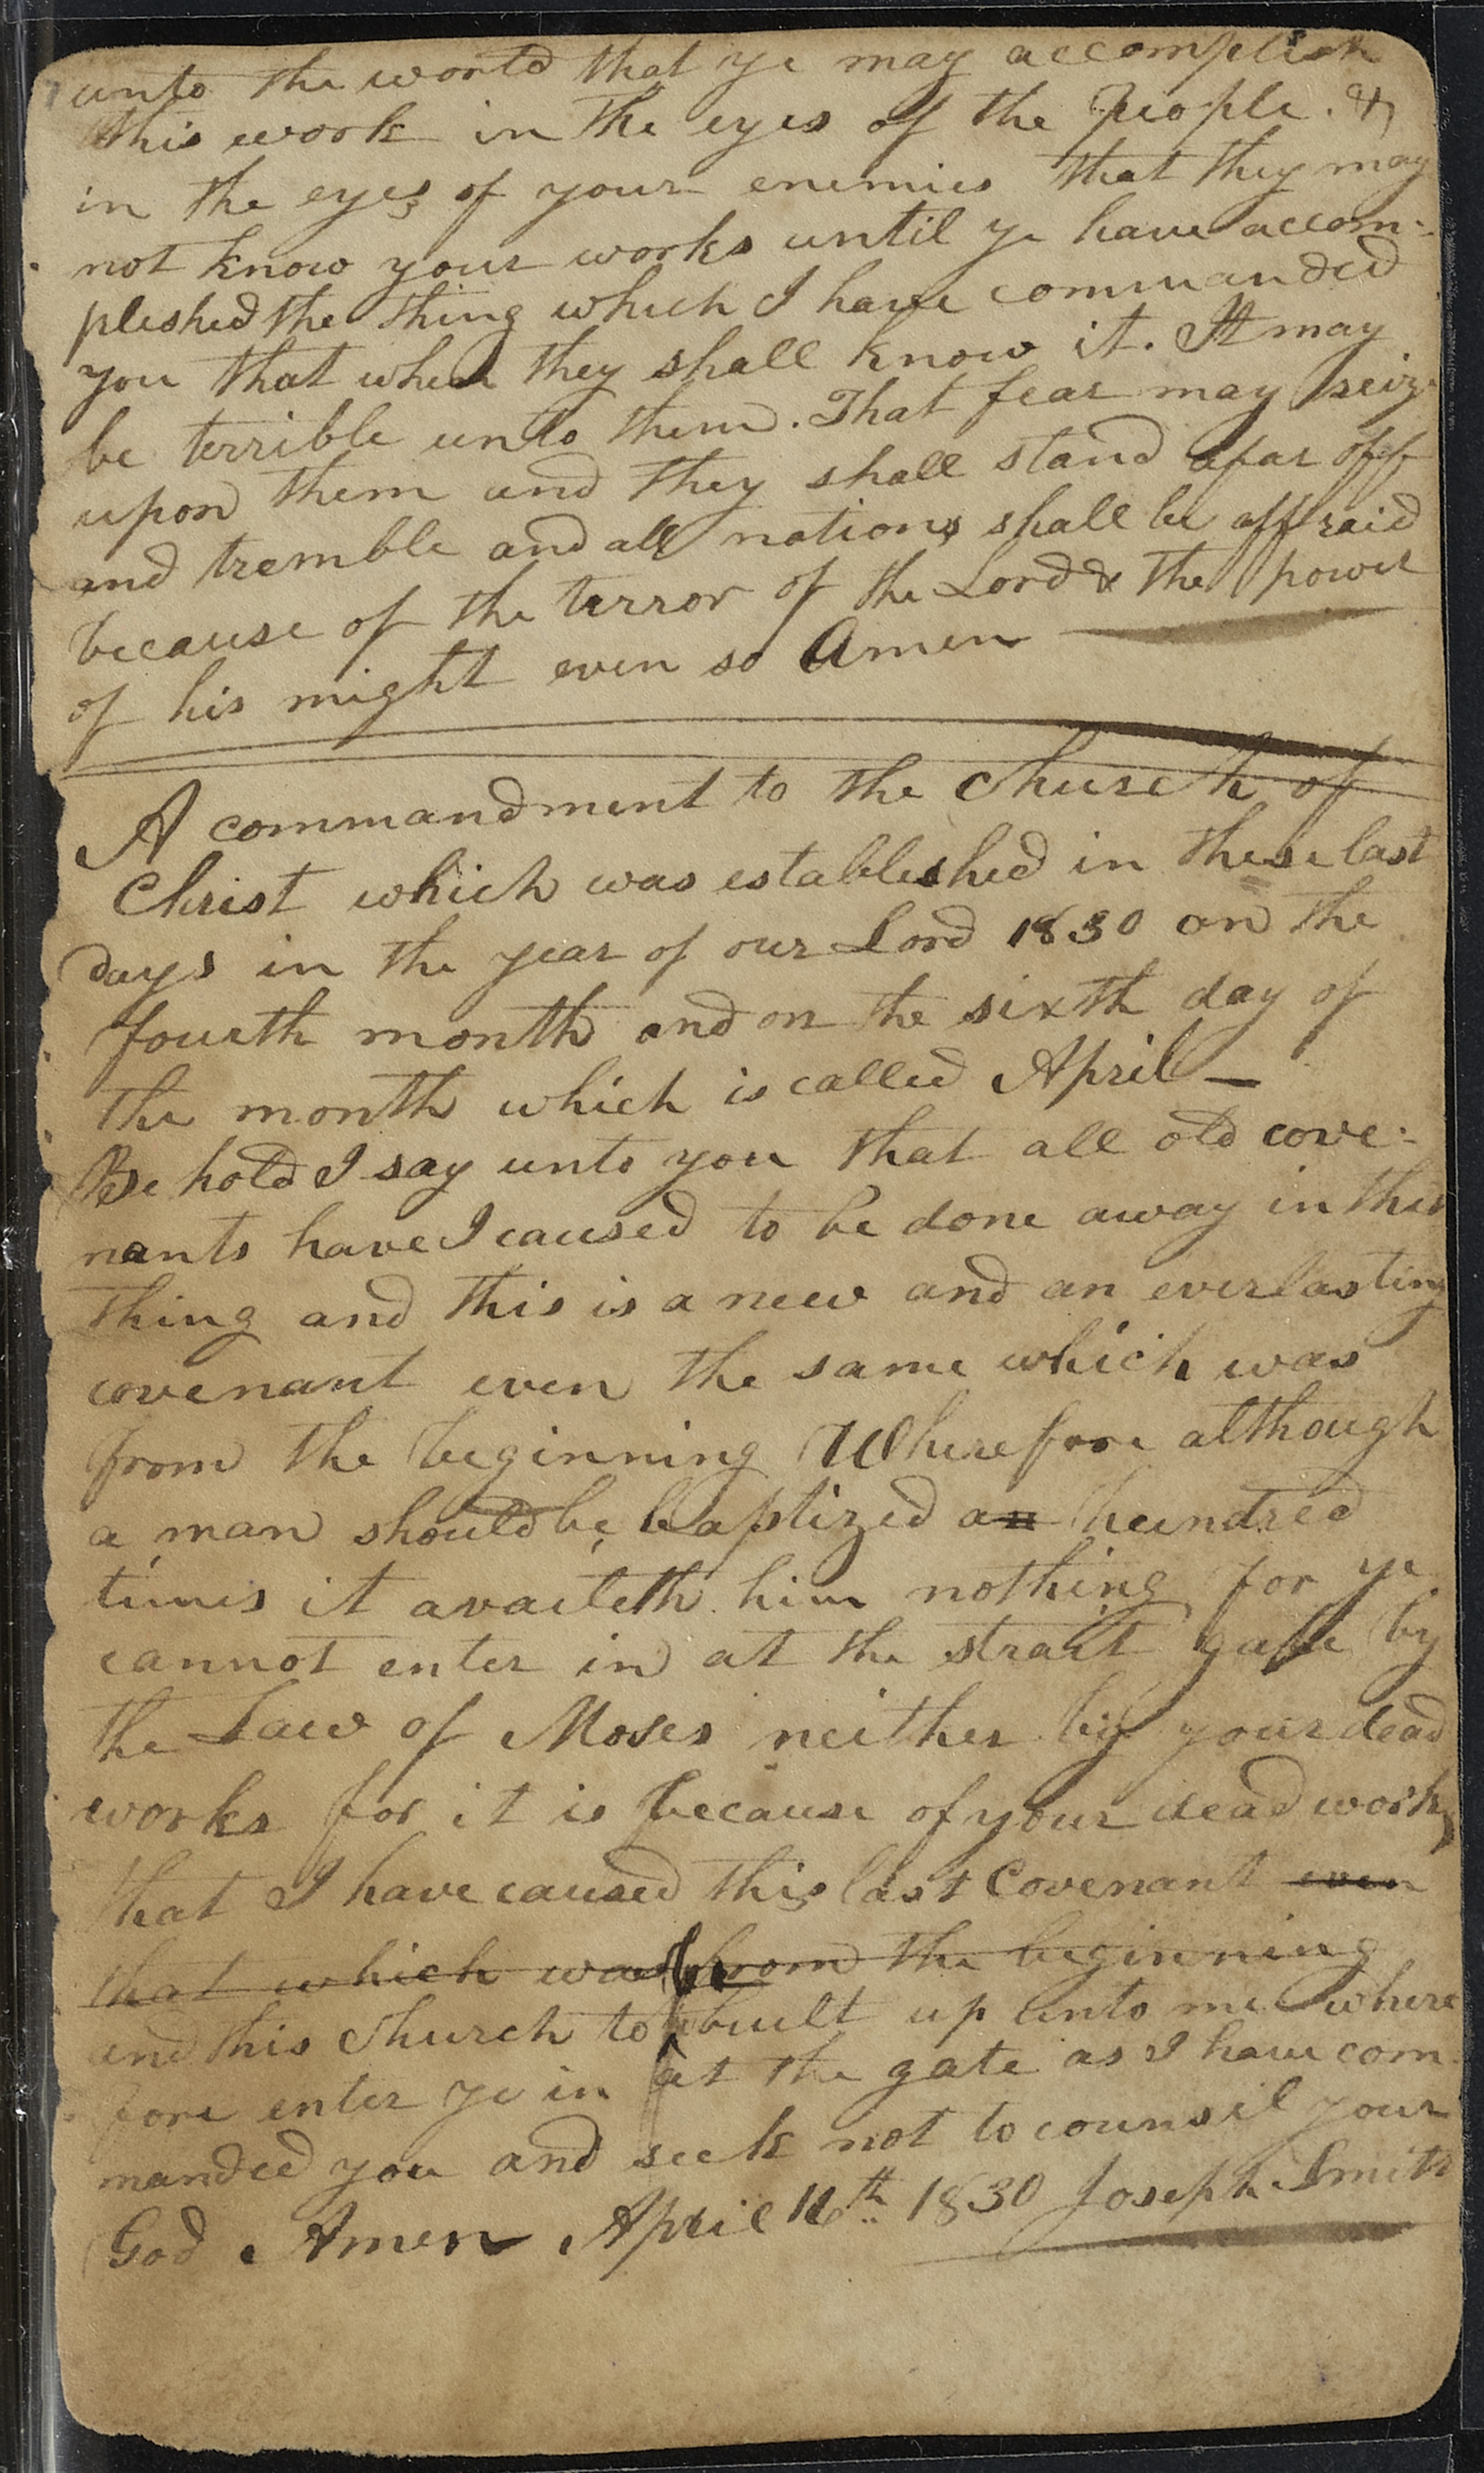 unto the world that ye may accomplish
this work in the eyes of the People. &
in the eyes of your enemies that they may
not know your works until ye have accom-
plished the thing which I have commanded
you that when they shall know it. It may
be terrible unto them. That fear may seize
upon them and they shall stand afar off
and tremble and all nations shall be affraid
because of the terror of the Lord & the power
of his might even so Amen
A commandment to the Church of
Christ which was established in these last
days in the year of our Lord 1830 on the
fourth month and on the sixth day of
the month which is called April —
Be hold I say unto you that all old cove-
nants have I caused to be done away in this
thing and this is a new and an everlasting
covenant even the same which was
from the beginning Wherefore although
a man should be baptized an hundred
times it availeth him nothing for ye
cannot enter in at the strait gate by
the Law of Moses neither by your dead
works for it is because of your dead works
that I have caused this last Covenant even
that which was from the beginning
and this Church to be built up unto me where
fore enter ye in at the gate as I have com
manded you and seek not to counsil your
God Amen April 16th 1830 Joseph Smith